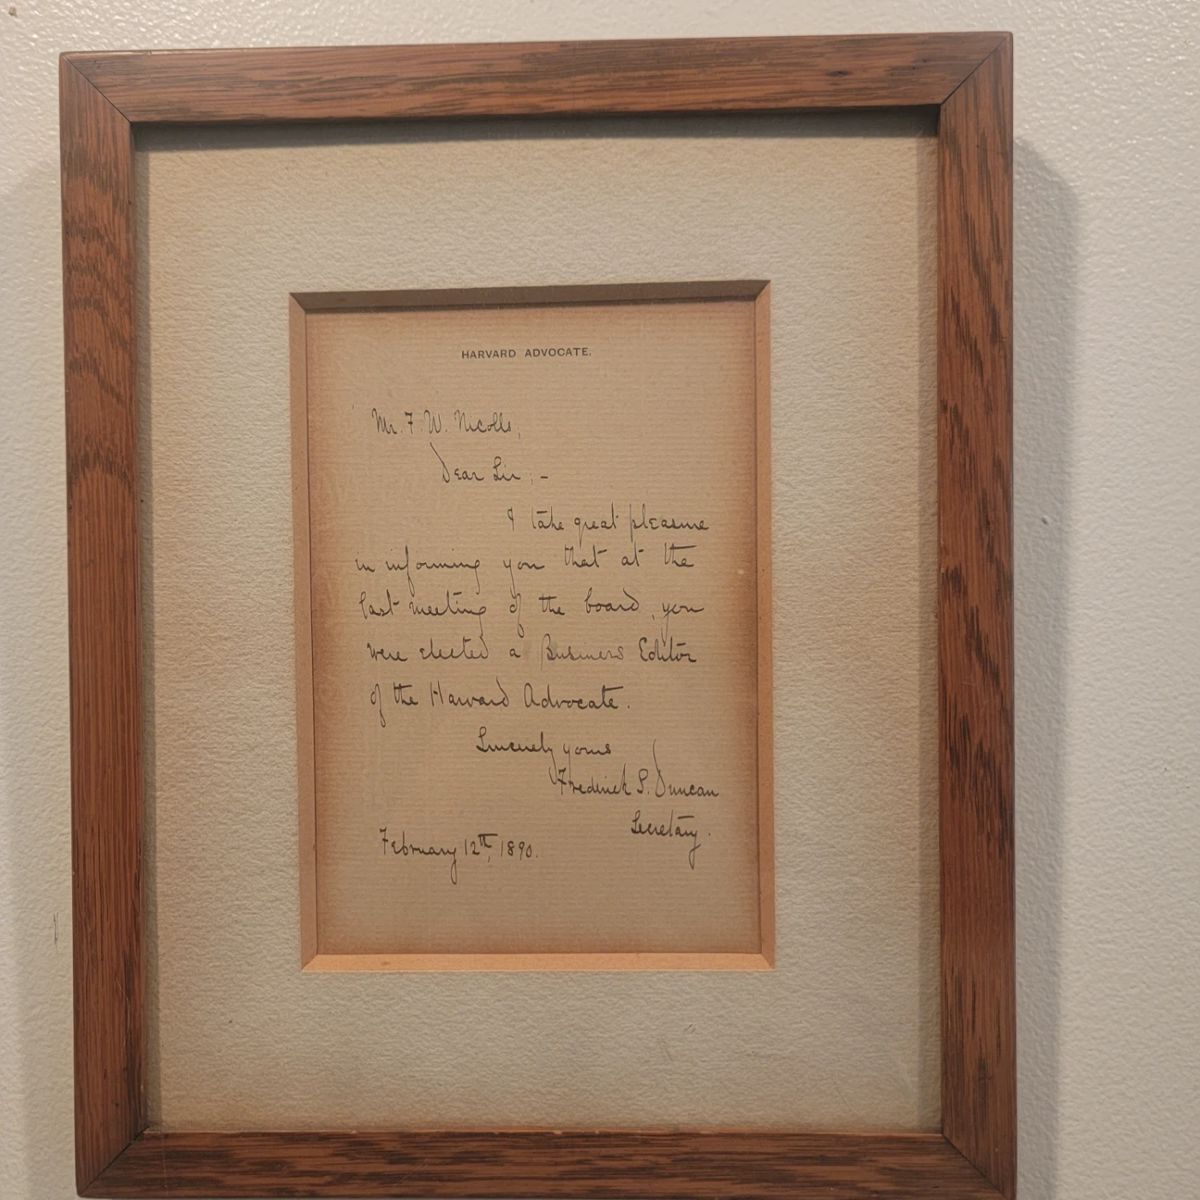 HARVARD ADVOCATE.
Mr. F. W. Nicolls,
Dear Sir:-
I take great pleasure
in informing you that at the
last meeting of the board, you
were elected a Business Editor
of the Harvard Advocate.
Sincerely yours
Frederick S. Duncan
Secretary.
February 12th, 1890.